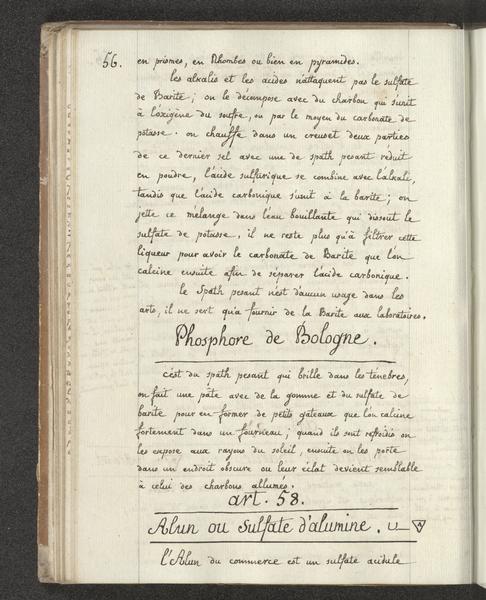 56.
en prismes, en Rhombes ou bien en pyramides.
les alkalis et les acides n'attaquent pas le sulfate
de Barite; on le décompose avec du charbon qui s'unit
à l'oxigène du souffre, ou par le moyen du carbonate de
potasse. on chauffe dans un creuset deux parties
de ce dernier sel avec une de spath pesant réduit
en poudre, l'acide sulfurique se combine avec l'alkali,
tandis que l'acide carbonique s'unit à la barite; on
jette ce mélange dans l'eau bouillante qui dissout le
sulfate de potasse, il ne reste plus qu'à filtrer cette
liqueur pour avoir le carbonate de Barite que l'on
calcine ensuite afin de séparer l'acide carbonique.
le Spath pesant n'est d'aucun usage dans les
arts, il ne sert qu'a fournir de la Barite aux laboratoires.
Phosphore de Bologne.
c'est du spath pesant qui brille dans les ténebres,
on fait une pâte avec de la gomme et du sulfate de
barite pour en former de petits gateaux que l'on calcine
fortement dans un fourneau; quand ils sont refroidis on
les expose aux rayons du soleil, ensuite on les porte
dans un endroit obscure ou leur éclat devient semblable
à celui des charbons allumés.
art. 58.
Alun ou Sulfate d'alumine.
l'Alun du commerce est un sulfate acidule